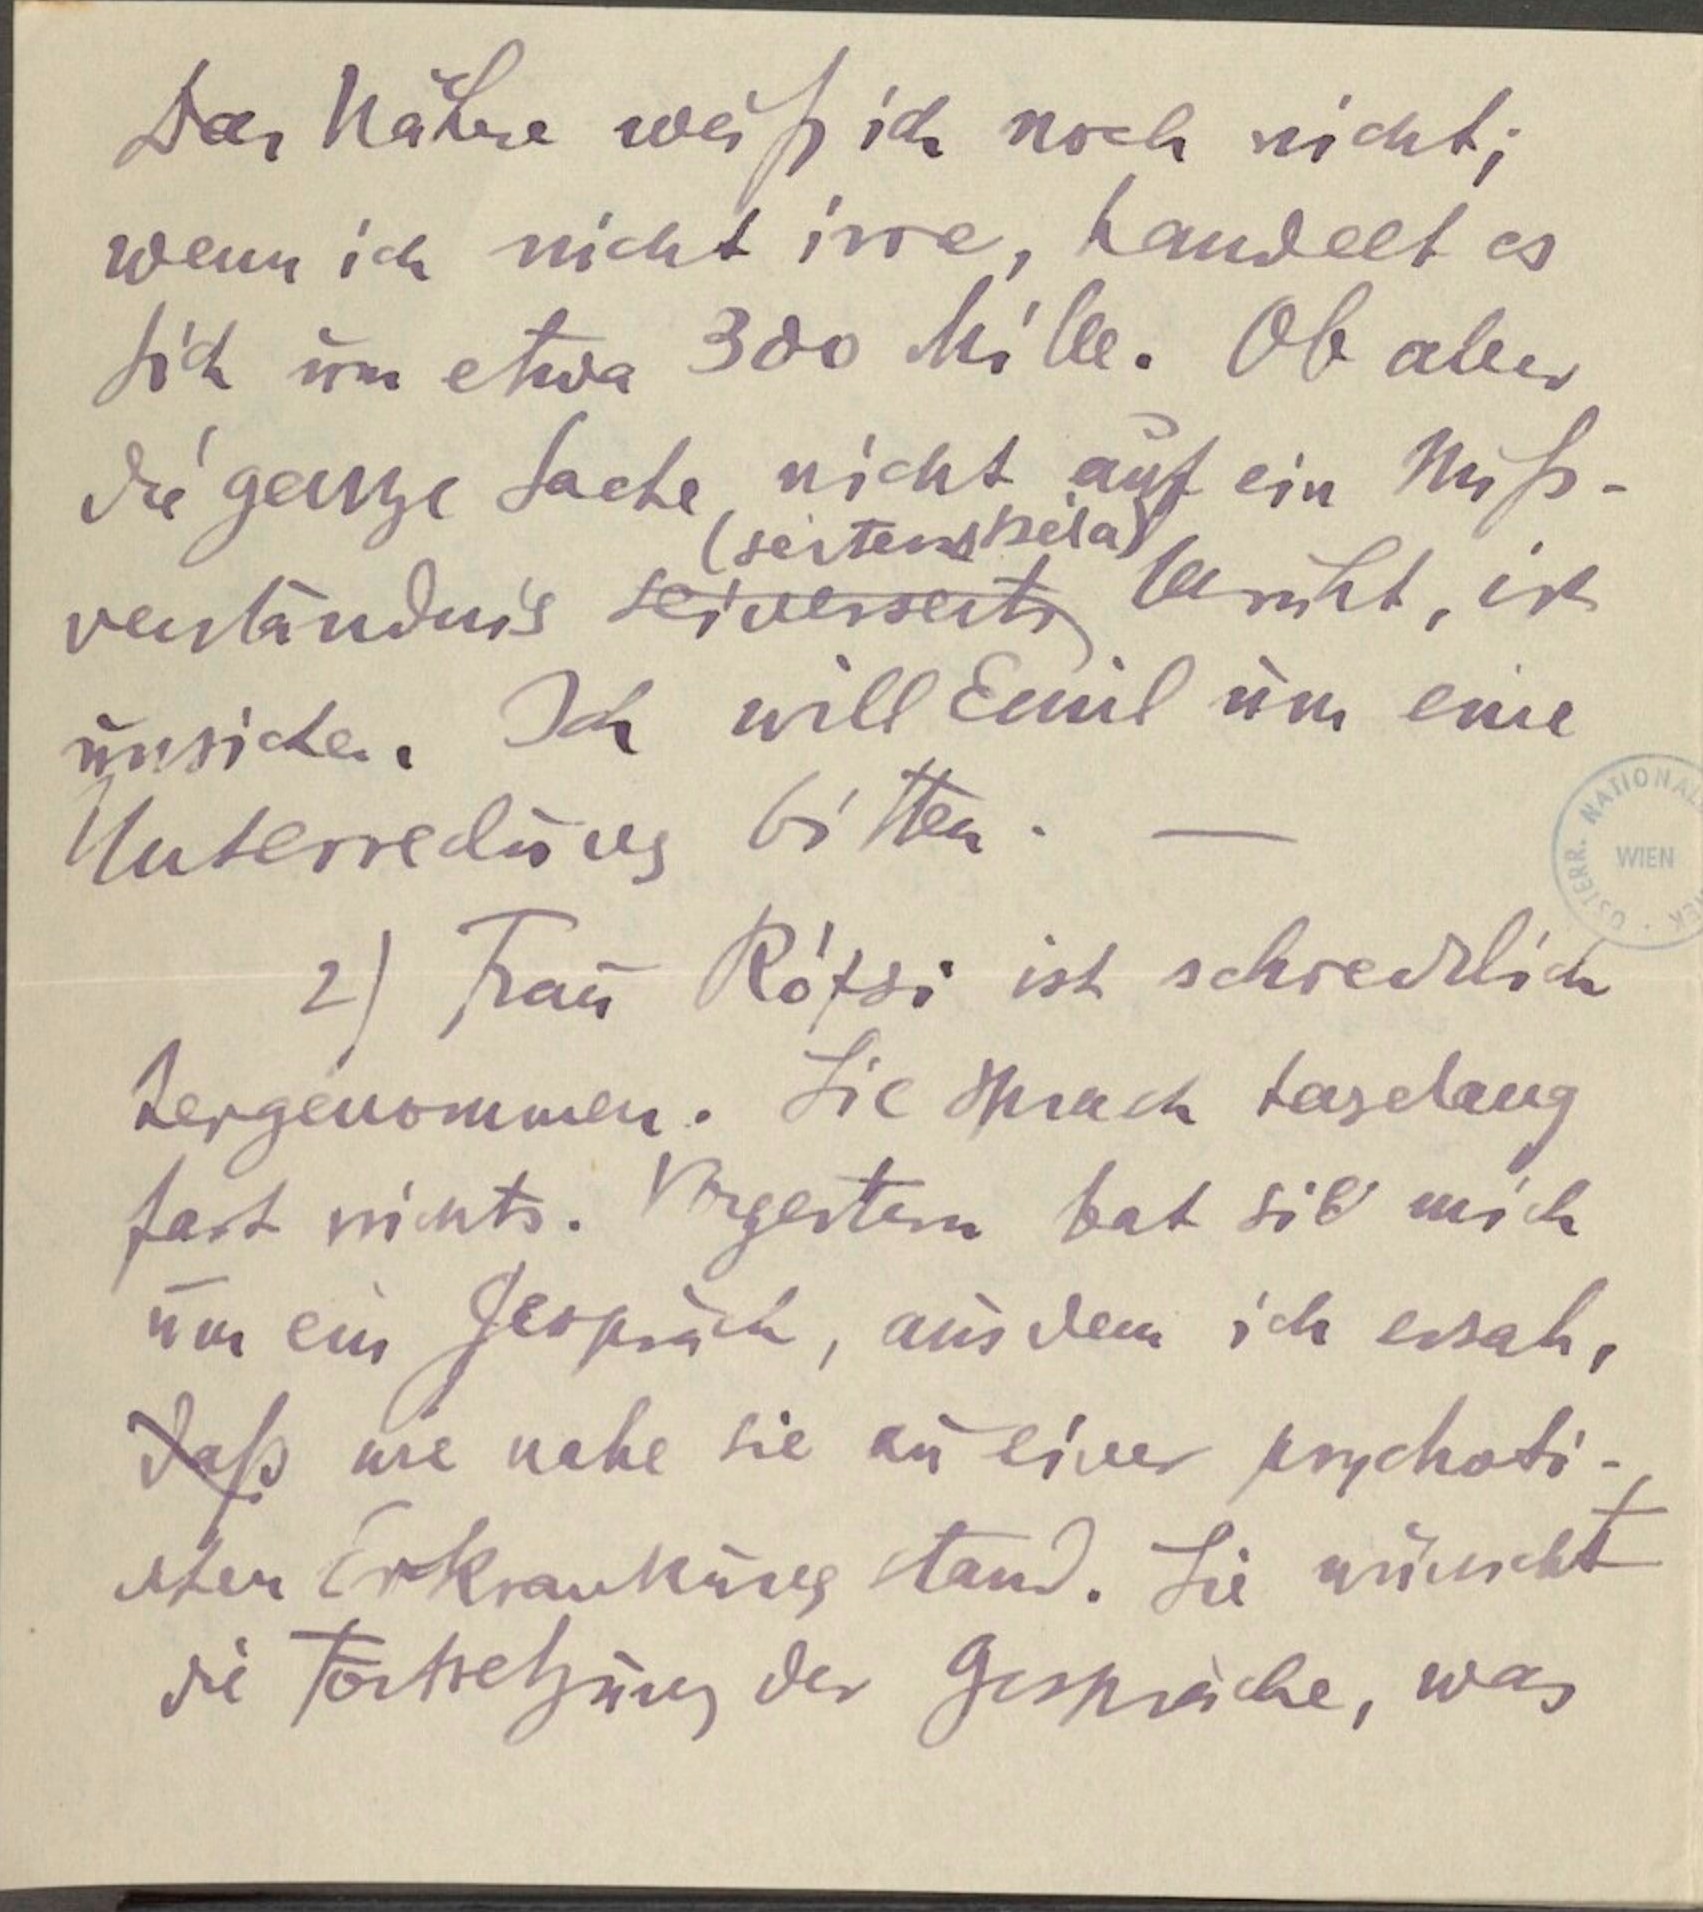 Das Nähere weiß ich noch nicht;
wenn ich nicht irre, handelt es
sich um etwa 300 Mille. Ob aber
die ganze Sache nicht auf ein Miß-
(seitens Béla)
verständnis seinerseits beruht, ist
unsicher. Ich will Emil um eine
Unterredung bitten. —
2) Frau Rózsi ist schrecklich
hergenommen. Sie sprach tagelang
fast nichts. Vorgestern bat sie mich
um ein Gespräch, aus dem ich ersah,
daß wie nahe sie zu einer psychoti-
schen Erkrankung stand. Sie wünscht
die Fortsetzung der Gespräche, was
ÖSTERR. NATIONAL
WIEN